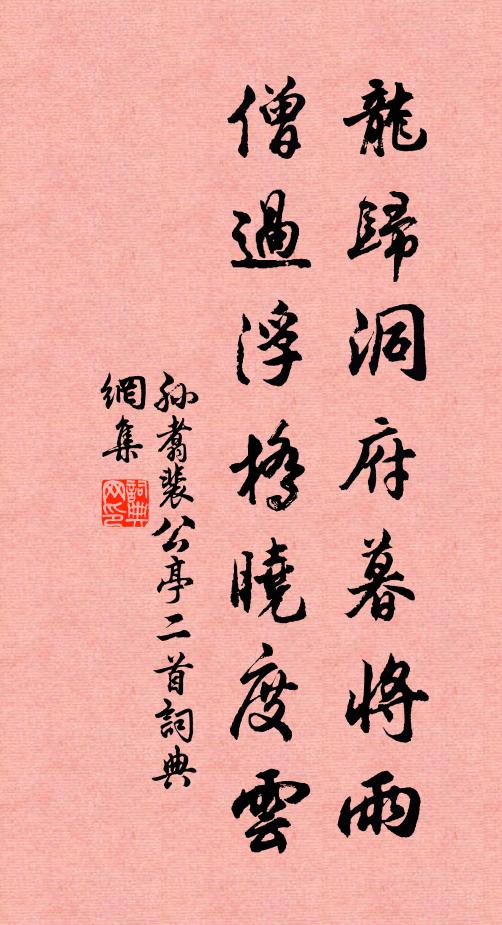 龍歸洞府暮將雨
僧過浮橋曉度雲
孫翥裴公亭二首詞典
網集
詞典網印